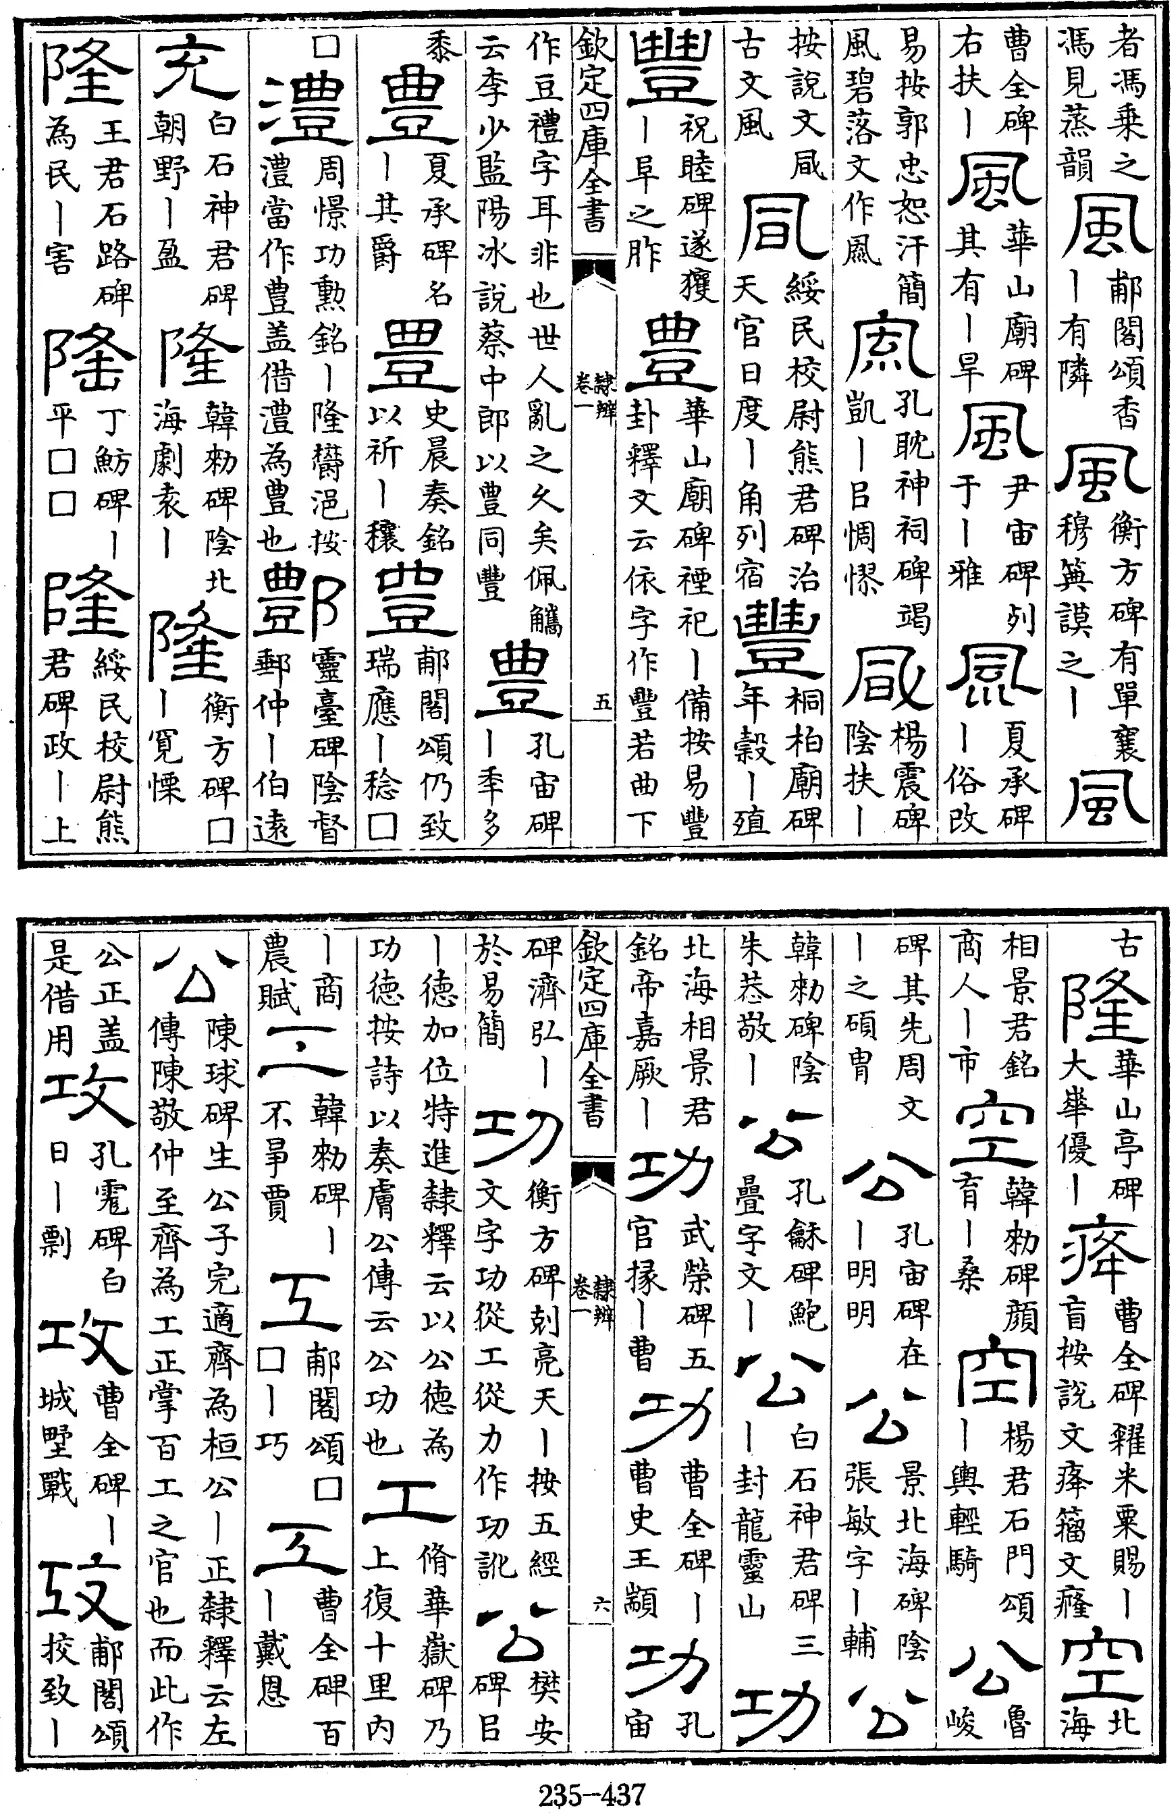 者馮乗之
馮見蒸韻
風
郙閣頌香
丨有隣
風
衡方碑有單襄
穆筭謨之丨
風
曹全碑
右扶丨
風
華山廟碑
其有丨旱
風
尹宙碑列
于丨雅
風
夏承碑
丨俗改
易按郭忠恕汗簡
風碧落文作凮
孔耽神祠碑竭
凱丨吕惆憀
楊震碑
陰扶丨
按説文凬
古文風
綏民校尉熊君碑治
天官日度丨角列宿
豐
桐柏廟碑
年穀丨殖
豐
祝睦碑遂獲
丨阜之胙
豊
華山廟碑禋祀丨備按易豐
卦釋文云依字作豐若曲下
欽定四庫全書
隸辨
卷一
五
作豆禮字耳非也世人亂之久矣佩觿
云李少監陽冰説蔡中郎以豊同豐
豊
孔宙碑
丨季多
黍
豊
夏承碑名
丨其爵
豊
史晨奏銘
以祈丨穰
豊
郙閣頌仍致
瑞應丨稔□
□
澧
周憬功勲銘丨隆欝浥按
澧當作豊盖借澧為豊也
酆
靈臺碑陰督
郵仲丨伯逺
充
白石神君碑
朝野丨盈
隆
韓勑碑陰北
海劇袁丨
隆
衡方碑□
丨寛慄
隆
王君石路碑
為民丨害
隆
丁魴碑丨
平□□
隆
綏民校尉熊
君碑政丨上
古
隆
華山亭碑
大華優丨
㾐
曹全碑糴米粟賜丨
盲按説文㾐籕文癃
空
北
海
相景君銘
商人丨市
空
韓勑碑顔
育丨桑
空
楊君石門頌
丨輿輕騎
公
魯
峻
碑其先周文
丨之碩胄
公
孔宙碑在
丨明明
公
景北海碑陰
張敏字丨輔
公
韓勑碑陰
朱㳟敬丨
公
孔龢碑鮑
疊字文丨
公
白石神君碑三
丨封龍靈山
功
北海相景君
銘帝嘉厥丨
功
武榮碑五
官掾丨曹
功
曹全碑丨
曹史王顓
功
孔
宙
欽定四庫全書
隸辨
卷一
六
碑濟弘丨
於易簡
功
衡方碑剋亮天丨按五經
文字功從工從力作㓛訛
公
樊安
碑㠯
丨徳加位特進隸釋云以公徳為
功徳按詩以奏膚公傳云公功也
工
脩華嶽碑乃
上復十里内
丨商
農賦
工
韓勑碑丨
不爭賈
工
郙閣頌□
□丨巧
工
曹全碑百
丨戴恩
公
陳球碑生公子完適齊為桓公丨正隸釋云左
傳陳敬仲至齊為工正掌百工之官也而此作
公正盖
是借用
攻
孔宙碑白
日丨剽
攻
曹全碑丨
城墅戰
攻
郙閣頌
挍致丨
235-437